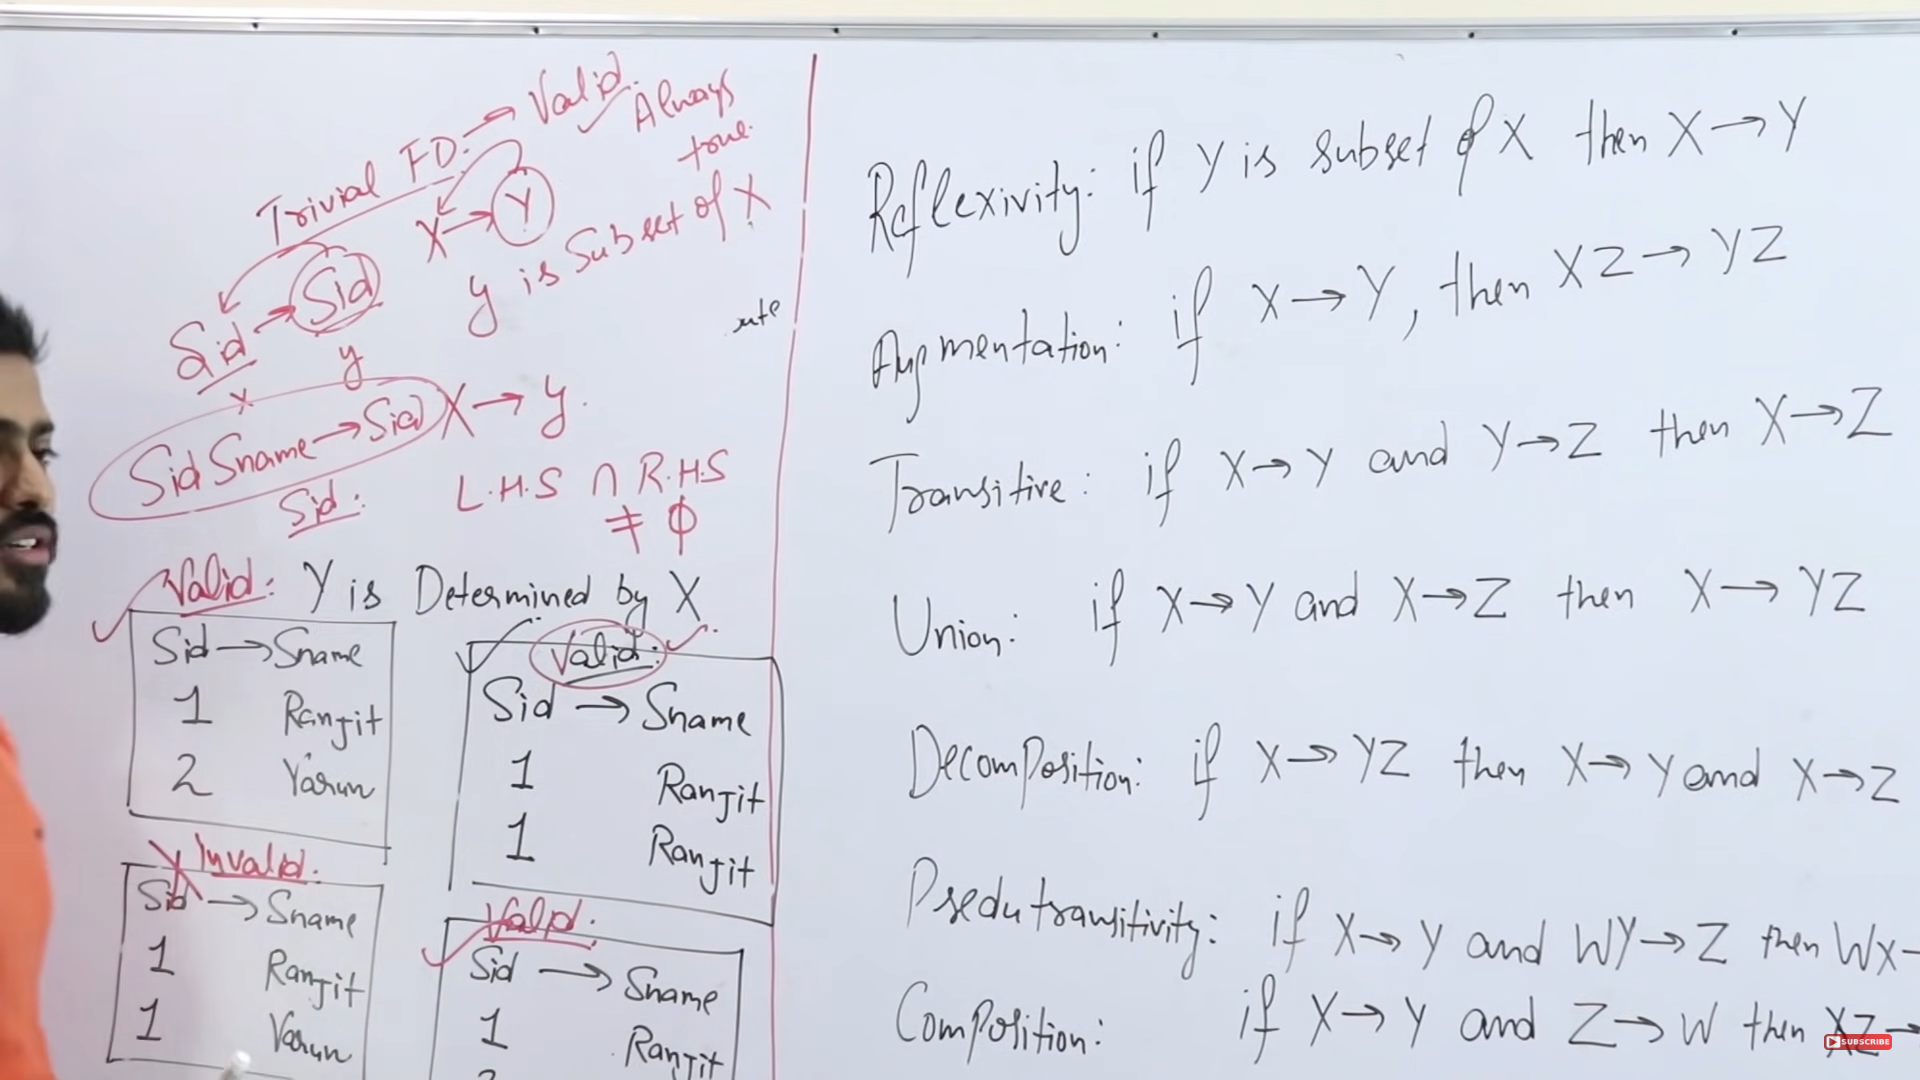 Trivial FD. → Valid. Always
true.
X → Y
Y is Subset of X
Sid → Sid
x y
Sid Sname → Sid X → Y.
Sid: L.H.S ∩ R.H.S
≠ ϕ
Valid: Y is Determined by X
Sid → Sname
1 Ranjit
2 Varun
Valid:
Sid → Sname
1 Ranjit
1 Ranjit
Invalid:
Sid → Sname
1 Ranjit
1 Varun
Valid:
Sid → Sname
1 Ranjit
Reflexivity: if Y is subset of X then X → Y
Augmentation: if X → Y, then XZ → YZ
Transitive: if X → Y and Y → Z then X → Z
Union: if X → Y and X → Z then X → YZ
Decomposition: if X → YZ then X → Y and X → Z
Psedutransitivity: if X → Y and WY → Z then WX →
Composition: if X → Y and Z → W then XZ →
SUBSCRIBE